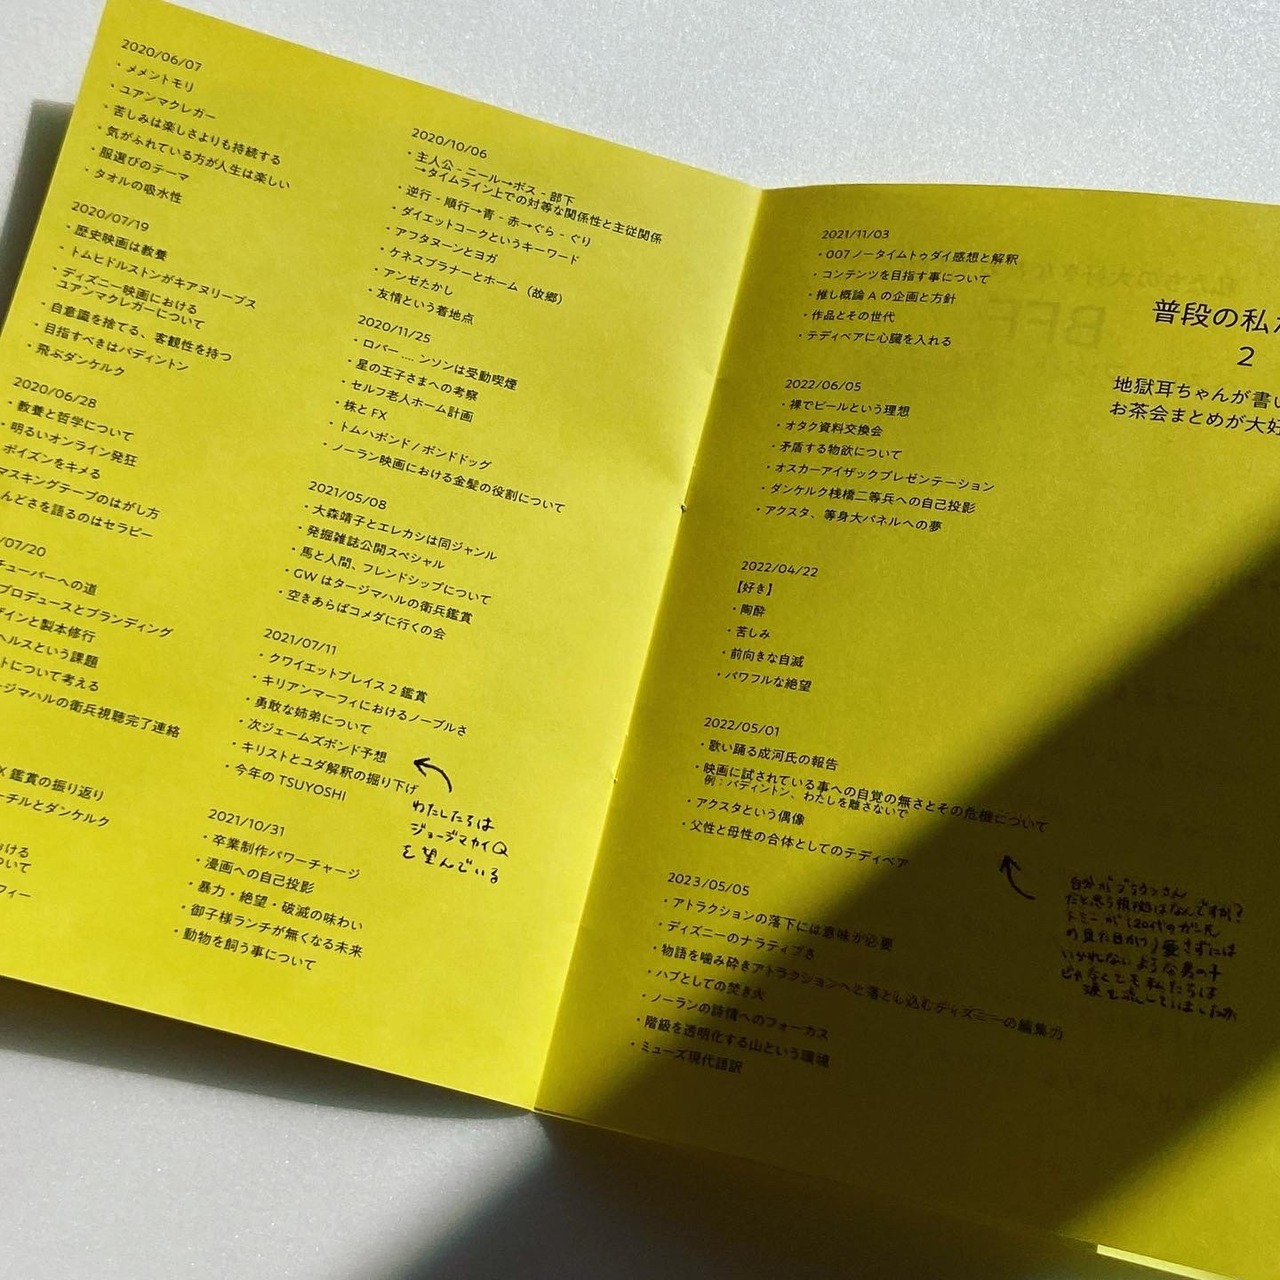 2020/06/07
・メメントモリ
・ユアンマクレガー
・苦しみは楽しさよりも持続する
・気がふれている方が人生は楽しい
・服選びのテーマ
・タオルの吸水性
2020/07/19
・歴史映画は教養
・トムヒドルストンがキアヌリーブス
・ディズニー映画における
ユアンマクレガーについて
・自意識を捨てる、客観性を持つ
・目指すべきはパディントン
・飛ぶダンケルク
2020/06/28
・教養と哲学について
・明るいオンライン発狂
ポイズンをキメる
マスキングテープのはがし方
んどさを語るのはセラピー
/07/20
チューバーへの道
プロデュースとブランディング
ザインと製本修行
ヘルスという課題
トについて考える
ージマハルの衛兵視聴完了連絡
X 鑑賞の振り返り
ーチルとダンケルク
おける
ついて
フィー
2020/10/06
・主人公 - ニール→ボス - 部下
→タイムライン上での対等な関係性と主従関係
・逆行 - 順行→青 - 赤→ぐら - ぐり
・ダイエットコークというキーワード
・アフタヌーンとヨガ
・ケネスブラナーとホーム（故郷）
・アンゼたかし
・友情という着地点
2020/11/25
・ロバー.... ンソンは受動喫煙
・星の王子さまへの考察
・セルフ老人ホーム計画
・株と FX
・トムハボンド / ボンドドッグ
・ノーラン映画における金髪の役割について
2021/05/08
・大森靖子とエレカシは同ジャンル
・発掘雑誌公開スペシャル
・馬と人間、フレンドシップについて
・GW はタージマハルの衛兵鑑賞
・空きあらばコメダに行くの会
2021/07/11
・クワイエットプレイス 2 鑑賞
・キリアンマーフィにおけるノーブルさ
・勇敢な姉弟について
・次ジェームズボンド予想
・キリストとユダ解釈の掘り下げ
・今年の TSUYOSHI
わたしたちは
ジョージマカイ Q
を望んでいる
2021/10/31
・卒業制作パワーチャージ
・漫画への自己投影
・暴力・絶望・破滅の味わい
・御子様ランチが無くなる未来
・動物を飼う事について
2021/11/03
・007ノータイムトゥダイ感想と解釈
・コンテンツを目指す事について
・推し概論 A の企画と方針
・作品とその世代
・テディベアに心臓を入れる
2022/06/05
・裸でビールという理想
・オタク資料交換会
・矛盾する物欲について
・オスカーアイザックプレゼンテーション
・ダンケルク桟橋二等兵への自己投影
・アクスタ、等身大パネルへの夢
2022/04/22
【好き】
・陶酔
・苦しみ
・前向きな自滅
・パワフルな絶望
2022/05/01
・歌い踊る成河氏の報告
・映画に試されている事への自覚の無さとその危機について
例：パディントン、わたしを離さないで
・アクスタという偶像
・父性と母性の合体としてのテディベア
自分がブラウンさん
だと思う根拠はなんですか?
トミーが(20代のガー兄
の見た目かけ)愛さずには
いかれないような男の子
じゃなくとも私たちは
涙を流していましたか
2023/05/05
・アトラクションの落下には意味が必要
・ディズニーのナラティブさ
・物語を噛み砕きアトラクションへと落とし込むディズニーの編集力
・ハブとしての焚き火
・ノーランの詩情へのフォーカス
・階級を透明化する山という環境
・ミューズ現代語訳
普段の私た
2
地獄耳ちゃんが書い
お茶会まとめが大好